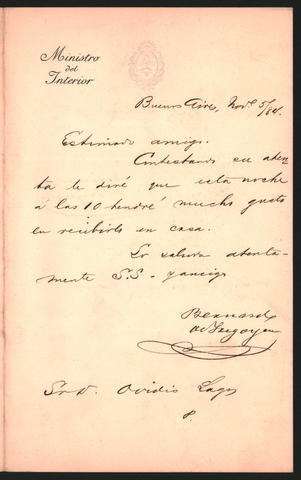 Ministro
del
Interior
Buenos Aires, Nov. 5/84.
Estimado amigo.
Contestando su aten-
ta le diré que esta noche
á las 10 tendré mucho gusto
en recibirlo en casa.
Lo saluda atenta-
mente S.S. y amigo
Bernardo
de Irigoyen
Sr. D. Ovidio Lagos